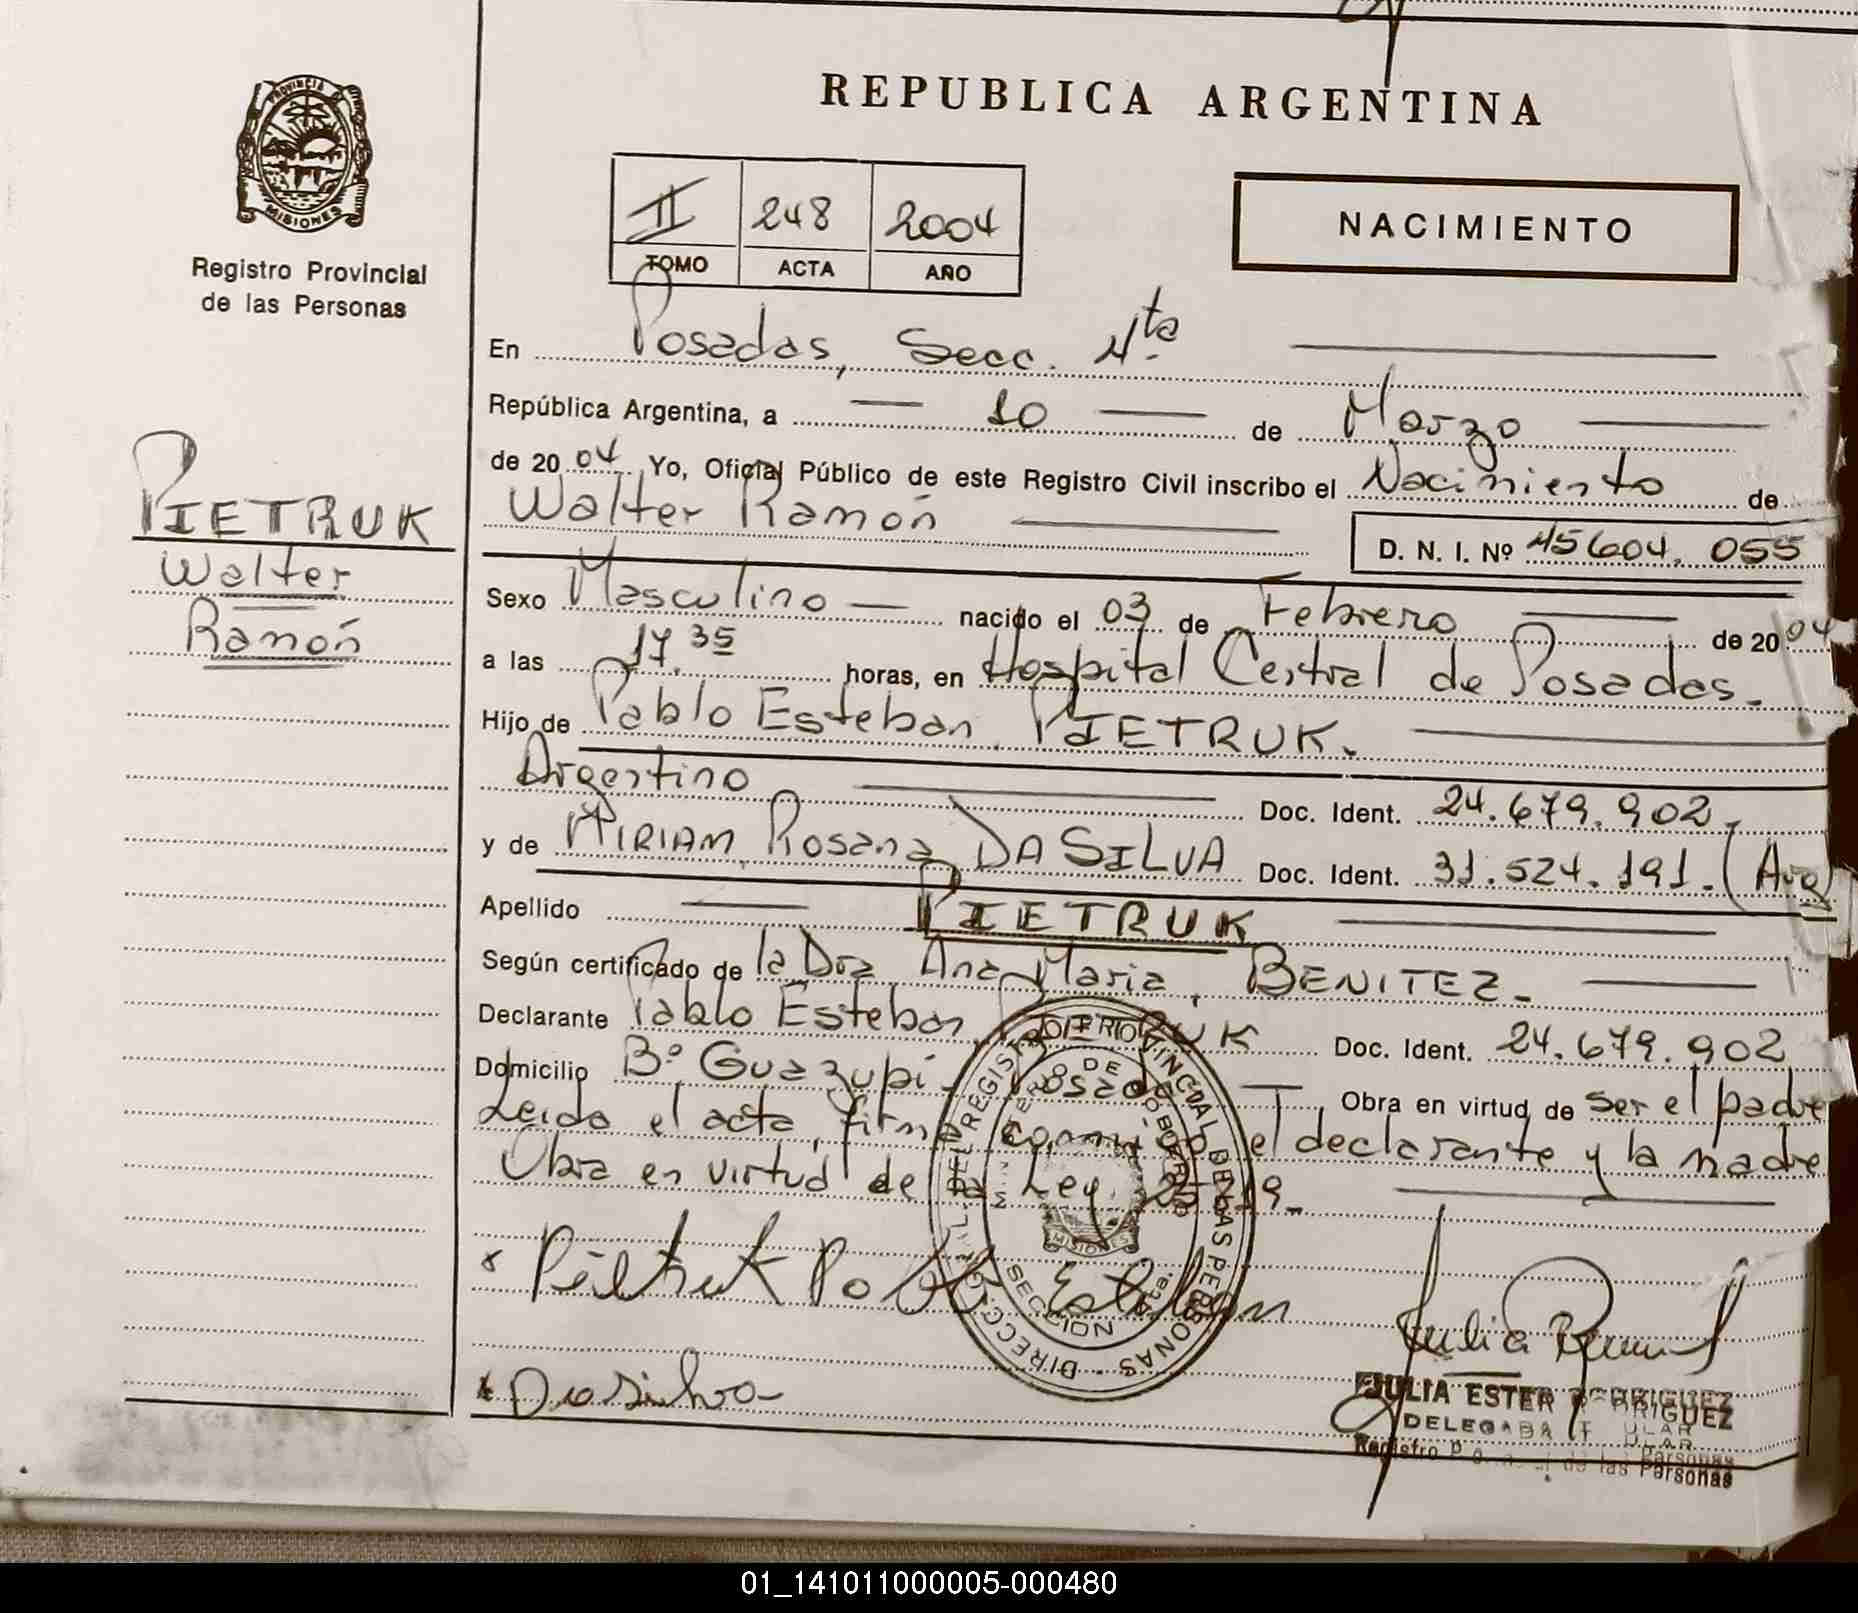 REPUBLICA ARGENTINA
PROVINCIA DE
MISIONES
Registro Provincial
de las Personas
II 248 2004
TOMO ACTA AÑO
NACIMIENTO
PIETRUK
Walter
Ramón
En Posadas, Secc. 4ta
República Argentina, a 10 de Marzo
de 2004 Yo, Oficial Público de este Registro Civil inscribo el Nacimiento de
Walter Ramón D. N. I. Nº 45604.055
Sexo Masculino nacido el 03 de Febrero de 2004
a las 17.35 horas, en Hospital Central de Posadas.
Hijo de Pablo Esteban PIETRUK.
Argentino Doc. Ident. 24.679.902.
y de MIRIAM Rosana DA SILVA Doc. Ident. 31.524.191. (Arg)
Apellido PIETRUK
Según certificado de la Dra Ana Maria, BENITEZ.
Declarante Pablo Esteban PIETRUK Doc. Ident. 24.679.902
Domicilio Bº Guazupi - Posadas, Obra en virtud de ser el padre
Leido el acta, firma conmigo el declarante y la madre
Obra en virtud de la Ley
Pietruk Pablo Esteban
Da Silva
DIRECC. GRAL. DEL REGISTRO PROVINCIAL DE LAS PERSONAS
MINISTERIO DE GOBIERNO
MISIONES
SECCION 4ta.
JULIA ESTER RODRIGUEZ
DELEGADA TITULAR
Registro Provincial de las Personas
01_141011000005-000480